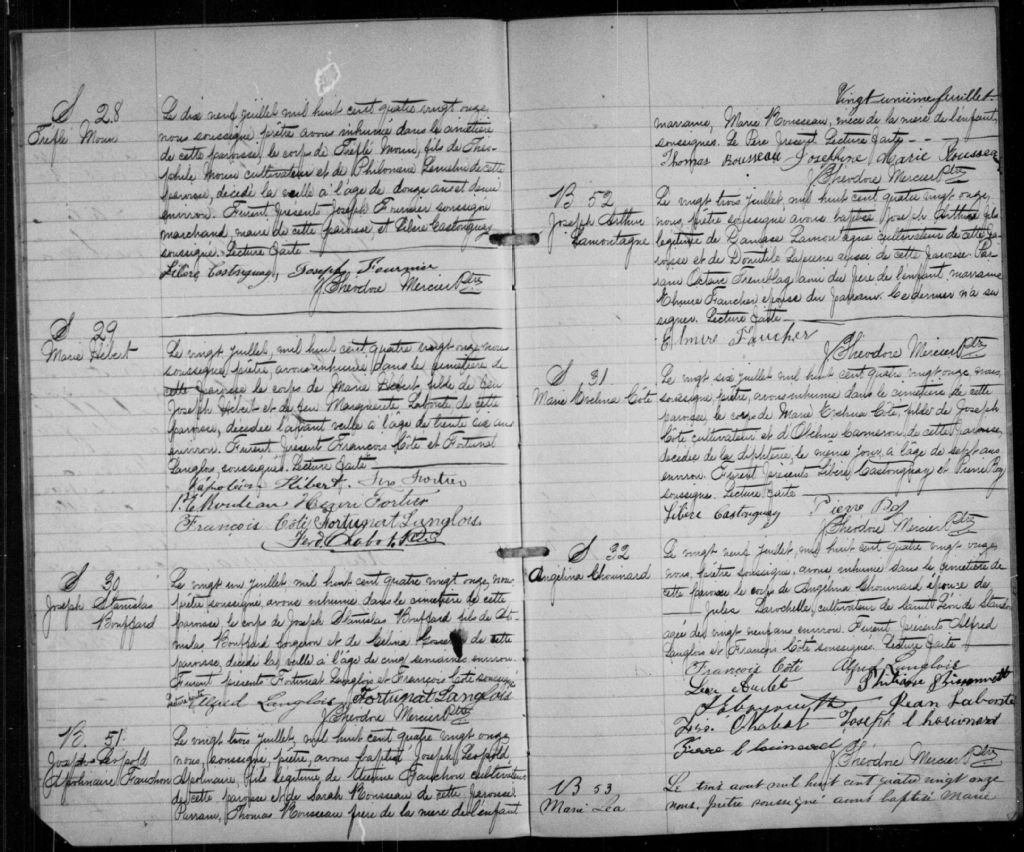 S 28
Trefflé Morin
Le dix neuf juillet mil huit cent quatre vingt onze,
nous soussigné prêtre avons inhumé dans le cimetière
de cette paroisse, le corps de Trefflé Morin, fils de Théo-
phile Morin cultivateur et de Philomène Lemelin de cette
paroisse, décédé la veille à l'âge de douze ans et demi
environ. Furent présents Joseph Fournier soussigné
marchand, maire de cette paroisse, et Libère Castonguay
soussigné. Lecture faite
Libère Castonguay, Joseph Fournier
J Théodore Mercier Ptre
S 29
Marie Hébert
Le vingt juillet, mil huit cent quatre vingt onze, nous
soussigné, prêtre, avons inhumé dans le cimetière de
cette paroisse le corps de Marie Hébert, fille de feu
Joseph Hébert et de feu Marguerite Labonté de cette
paroisse, décédée l'avant veille à l'âge de trente six ans
environ. Furent présent François Côté et Fortunat
Langlois, soussignés. Lecture faite
Napoléon Hébert. Fortier
Henri Fortier
François Côté Fortunat Langlois
Ferd. Chabot Ptre
S 30
Joseph Stanislas
Bouffard
Le vingt un juillet mil huit cent quatre vingt onze, nous,
prêtre soussigné, avons inhumé dans le cimetière de cette
paroisse, le corps de Joseph Stanislas Bouffard fils de
Bouffard forgeron et de Célina de cette
paroisse, décédé la veille à l'âge de cinq semaines environ.
Furent présents Fortunat Langlois et François Côté soussignés
Alfred Langlois Fortunat Langlois
J Théodore Mercier Ptre
B. 51
Joseph Léopold
Apolinaire Fauchon
Le vingt trois juillet, mil huit cent quatre vingt onze,
nous, soussigné, prêtre, avons baptisé Joseph Léopold
Apolinaire, fils légitime de Etienne Fauchon cultivateur
de cette paroisse et de Sarah Rousseau de cette paroisse.
Parrain, Thomas Rousseau frère de la mère de l'enfant
Vingt unième feuillet
marraine, Marie Rousseau, nièce de la mère de l'enfant,
soussignés. Le Père présent. Lecture faite
Thomas Rousseau Josephine Marie Rousseau
J Théodore Mercier Ptre
B 52
Joseph Arthur
Lamontagne
Le vingt trois juillet, mil huit cent quatre vingt onze,
nous, prêtre soussigné avons baptisé Joseph Arthur fils
légitime de Damase Lamontagne cultivateur de cette pa-
roisse et de Donutile Lajeune aussi de cette paroisse. Par-
rain Octave Tremblay ami du père de l'enfant, marraine
Elmire Faucher épouse du parrain. Ce dernier n'a su
signer. Lecture faite
Elmire Faucher
J Théodore Mercier Ptre
S 31.
Marie Evelina Côté
Le vingt six juillet mil huit cent quatre vingt onze, nous,
soussigné prêtre, avons inhumé dans le cimetière de cette
paroisse, le corps de Marie Evelina Côté, fille de Joseph
Côté cultivateur et d'Obéline Cameron, de cette paroisse,
décédée de la diphtérie, le même jour, à l'âge de sept ans
environ. Furent présents Libère Castonguay et Pierre Roy
soussigné. Lecture faite
Libère Castonguay Pierre Roy
J Théodore Mercier Ptre
S 32
Angélina Chouinard
Le vingt neuf juillet, mil huit cent quatre vingt onze,
nous, prêtre soussigné, avons inhumé dans le cimetière de
cette paroisse le corps de Angélina Chouinard épouse de
Jules Larochelle, cultivateur de Saint Léon de Standon
agée de vingt neuf ans environ. Furent présents Alfred
Langlois et François Côté soussignés. Lecture faite
François Côté Alfred Langlois
Audet
Jean Labonté
Chabot Joseph Chouinard
Pierre Chouinard
J Théodore Mercier Ptre
B 53
Marie Léa
Le trois aout mil huit cent quatre vingt onze
nous, prêtre soussigné avons baptisé Marie